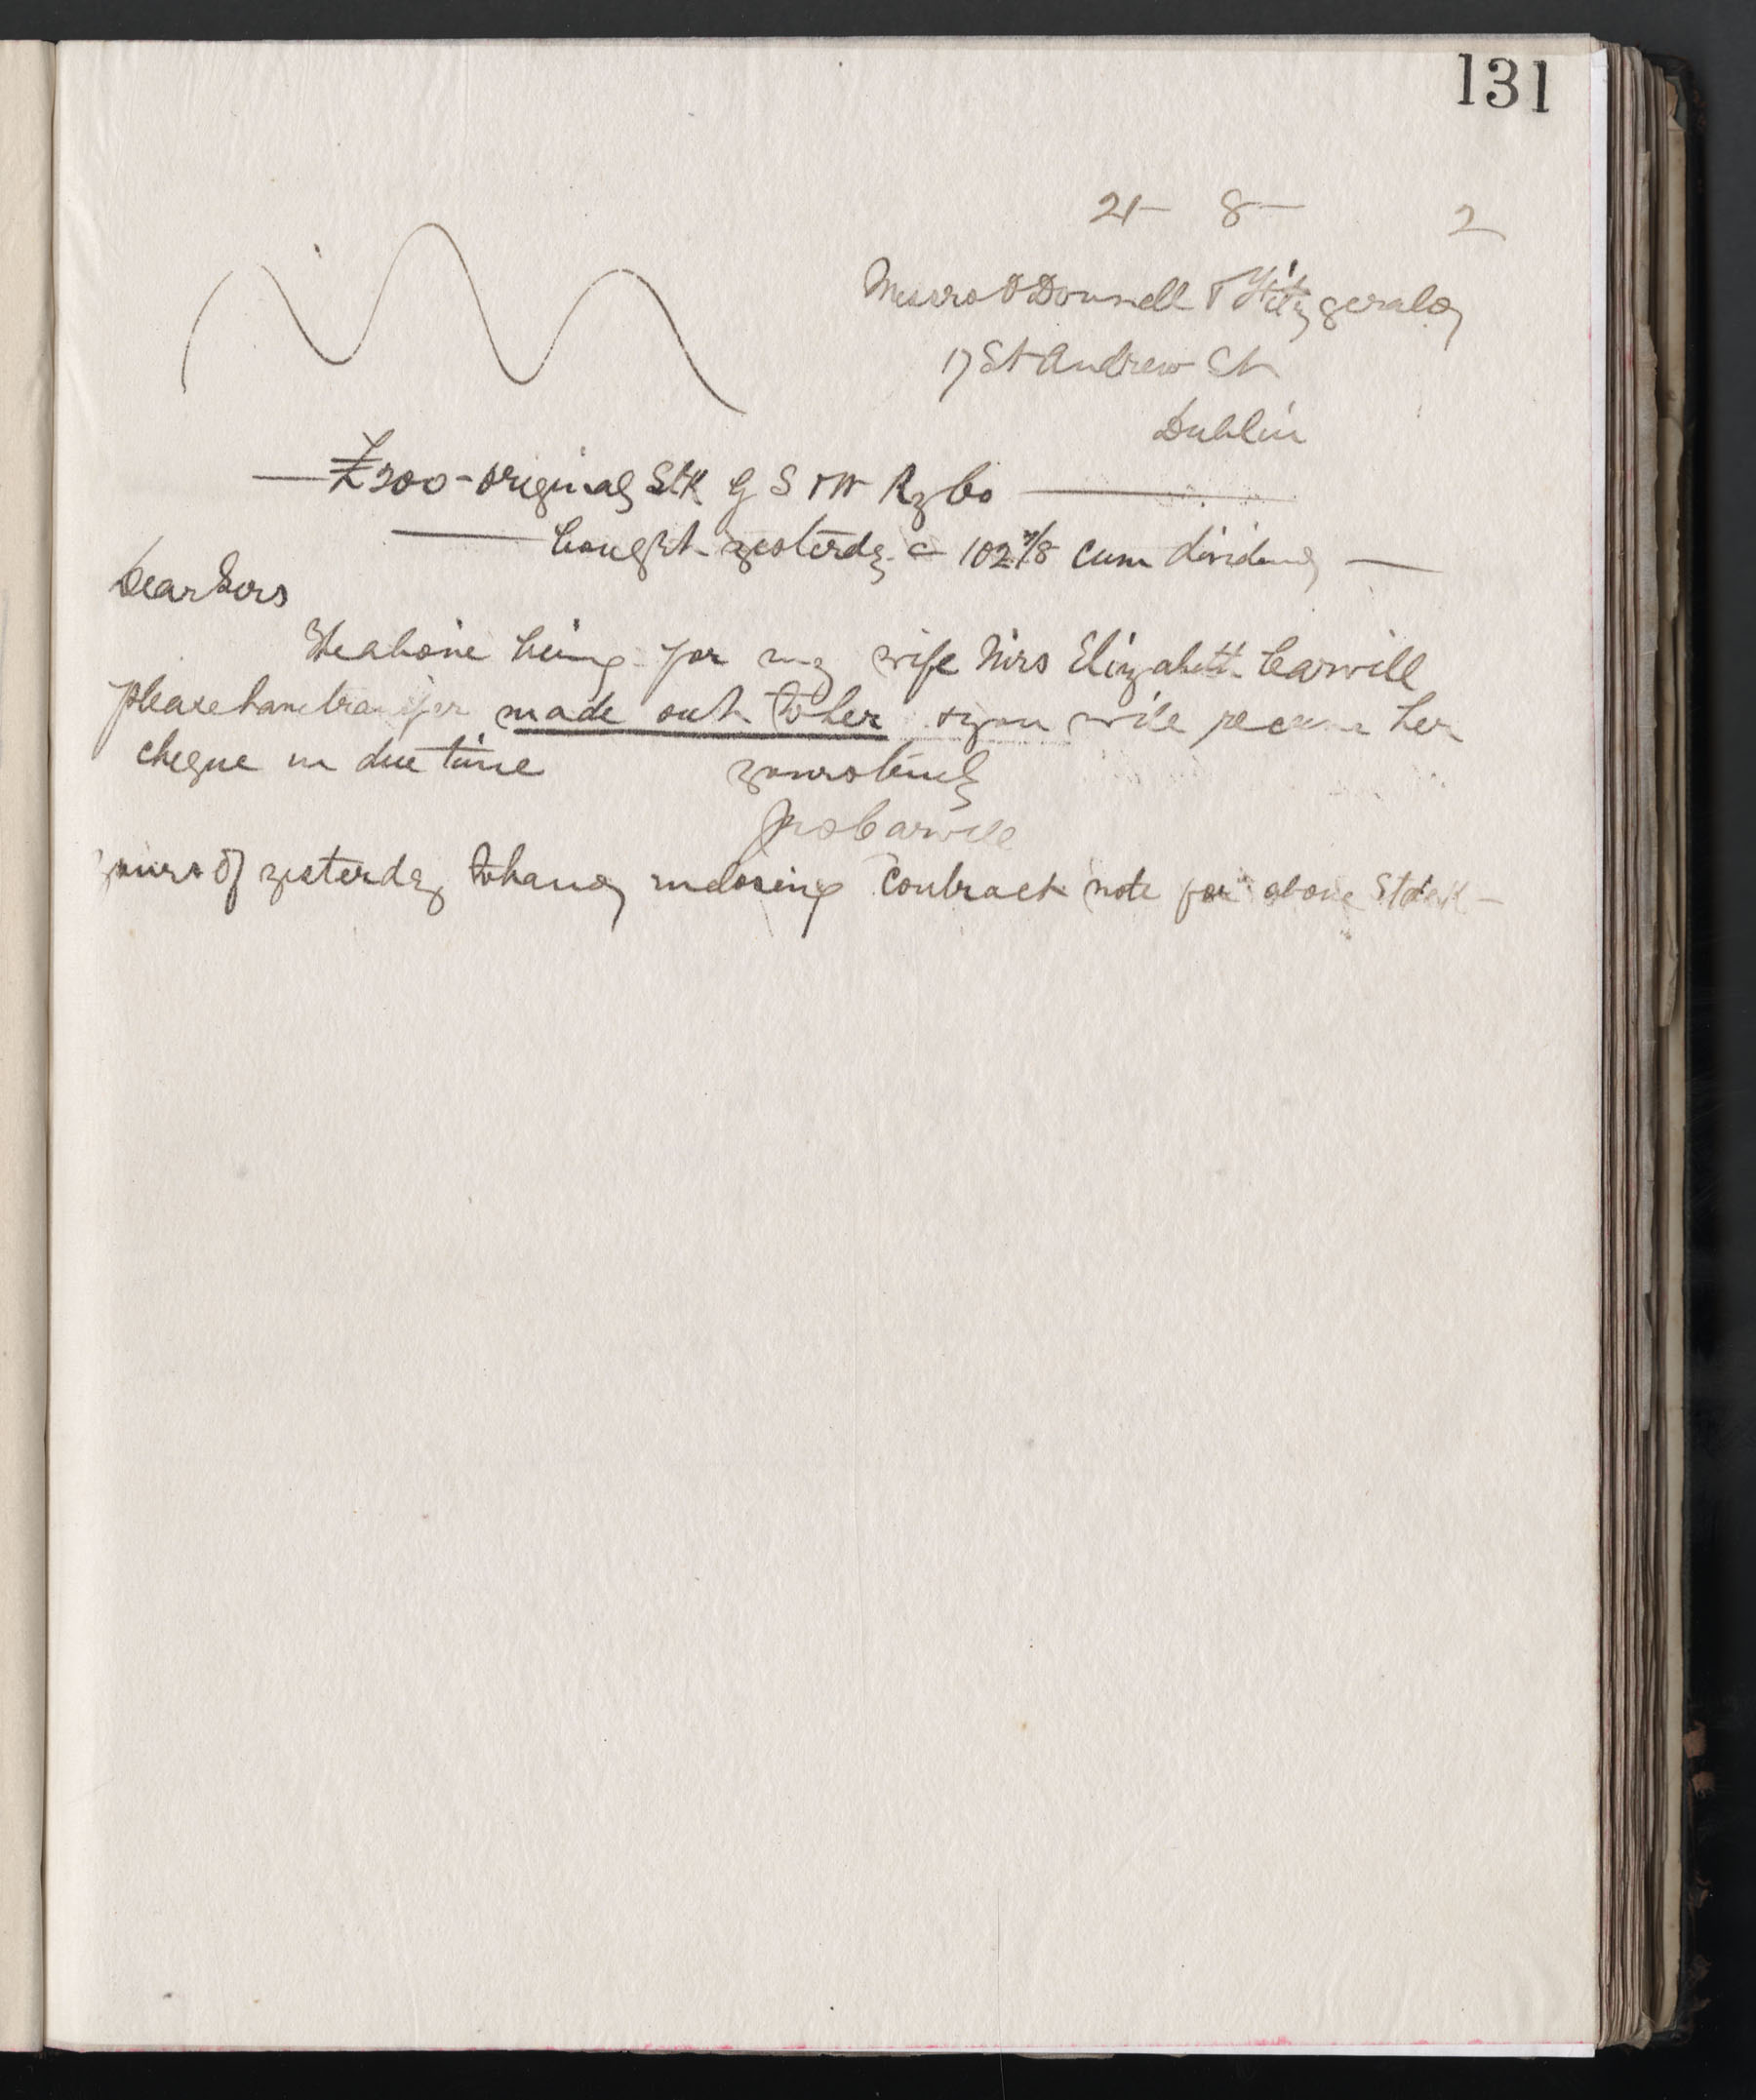 131
21 - 8 - 2
Messrs O'Donnell & Fitzgerald
17 St Andrew St
Dublin
— £200 - original Stk G S & W Ry Co —
— bought yesterdy @ 102 7/8 cum dividend —
Dear Sirs
The above being for my wife Mrs Elizabeth Carvill
please have transfer made out to her & you will receive her
cheque in due time yours truly
Jno Carvill
yours of yesterday to hand inclosing contract note for above Stock -